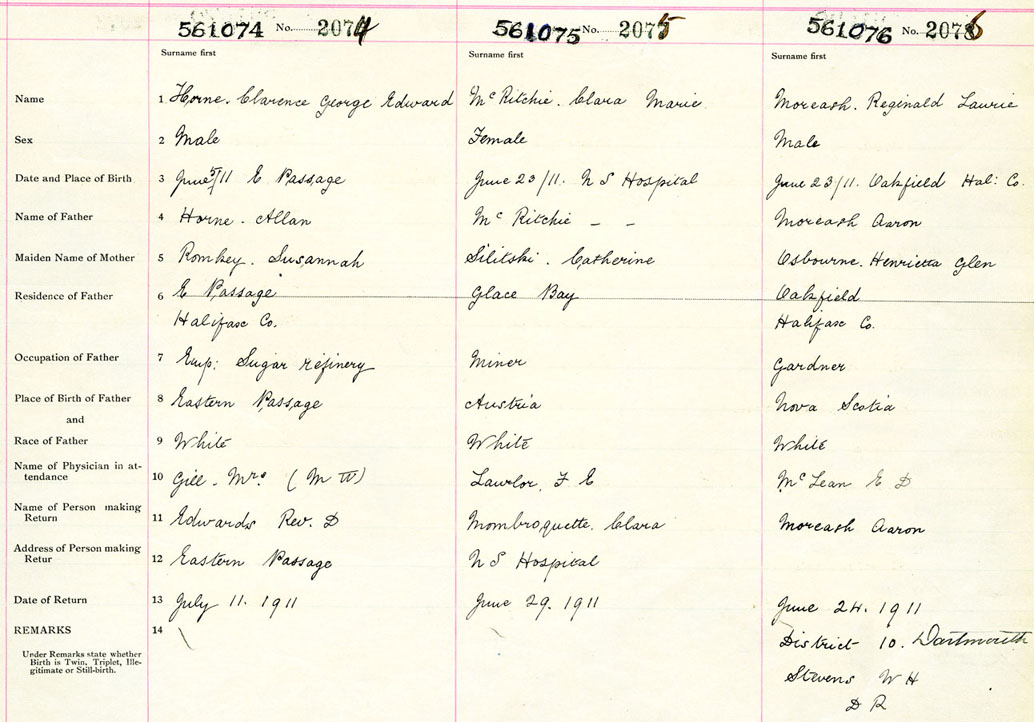 561074 No. 2074 561075 No. 2075 561076 No. 2076
Surname first Surname first Surname first
Name 1 Horne. Clarence George Edward McRitchie. Clara Marie Moreash. Reginald Laurie
Sex 2 Male Female Male
Date and Place of Birth 3 June 5/11 E Passage June 23/11. N S Hospital June 23/11. Oakfield Hal: Co.
Name of Father 4 Horne. Allan McRitchie – – Moreash Aaron
Maiden Name of Mother 5 Romkey. Susannah Silitski. Catherine Osbourne. Henrietta Glen
Residence of Father 6 E Passage Glace Bay Oakfield
Halifax Co. Halifax Co.
Occupation of Father 7 Emp: Sugar refinery Miner Gardner
Place of Birth of Father 8 Eastern Passage Austria Nova Scotia
and
Race of Father 9 White White White
Name of Physician in at-
tendance 10 Gill. Mrs. (M W) Lawlor, F E McLean E D
Name of Person making
Return 11 Edwards Rev. D Mombroquette. Clara Moreash Aaron
Address of Person making
Retur 12 Eastern Passage N S Hospital
Date of Return 13 July 11. 1911 June 29. 1911 June 24. 1911
REMARKS 14 District 10. Dartmouth
Under Remarks state whether
Birth is Twin, Triplet, Ille-
gitimate or Still-birth.
Stevens W H
D R